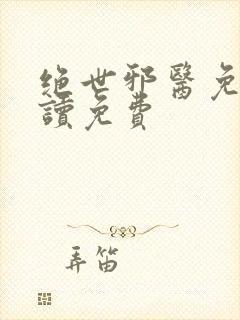 绝世邪醫免
讀免費
弄笛